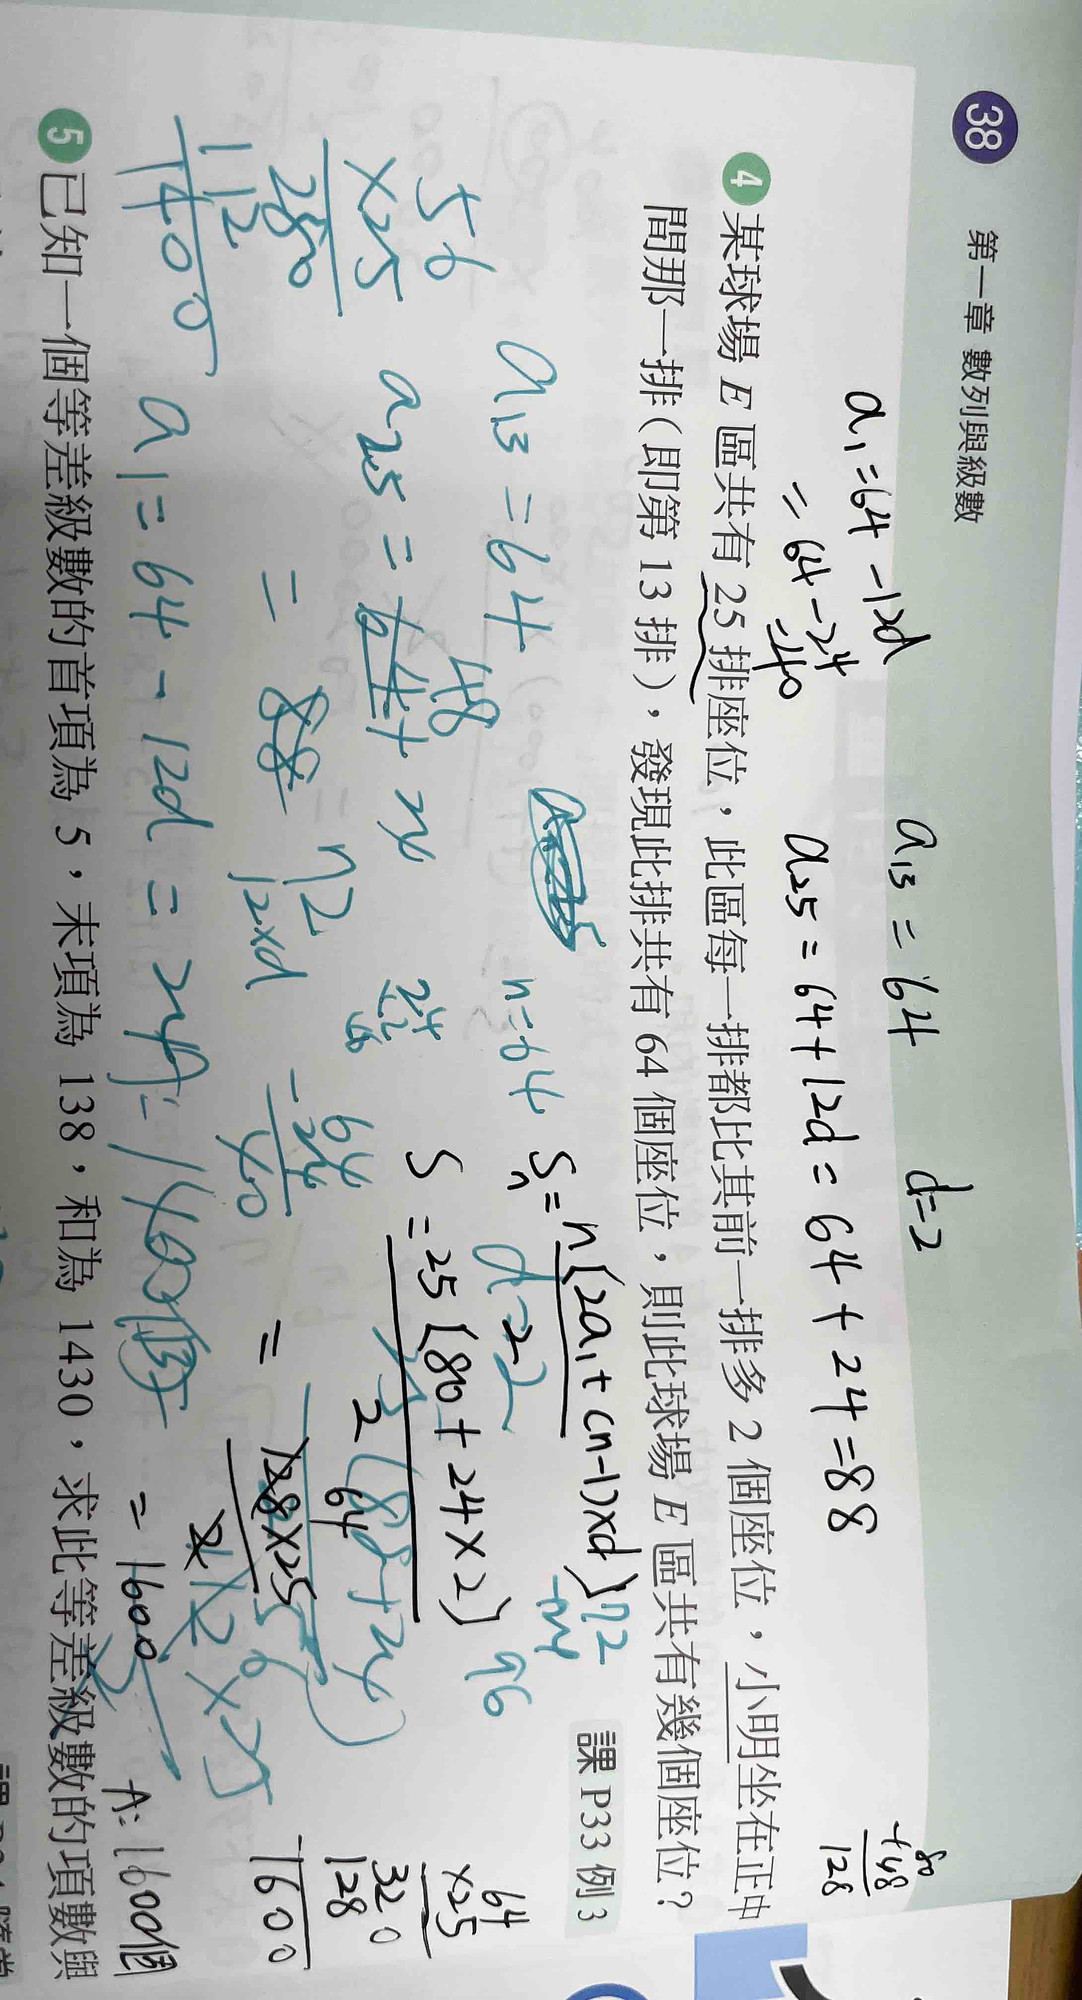 38 第一章 數列與級數
a₁=64-12d
=64-24
=40
a₁₃=64 d=2
a₂₅=64+12d=64+24=88
80
+48
128
4 某球場 E 區共有 25 排座位，此區每一排都比其前一排多 2 個座位，小明坐在正中
間那一排（即第 13 排），發現此排共有 64 個座位，則此球場 E 區共有幾個座位？
課 P33 例 3
a₁₃=64
n=64
d=2
Sₙ=n(2a₁+(n-1)×d)
72
96
S=25(80+24×2)
2
=128×25
2
=1600
A:1600個
64
×25
320
128
1600
56
×25
280
112
1400
48
12×d
64
-24
40
a₁=64-12d=24
5 已知一個等差級數的首項為 5，末項為 138，和為 1430，求此等差級數的項數與